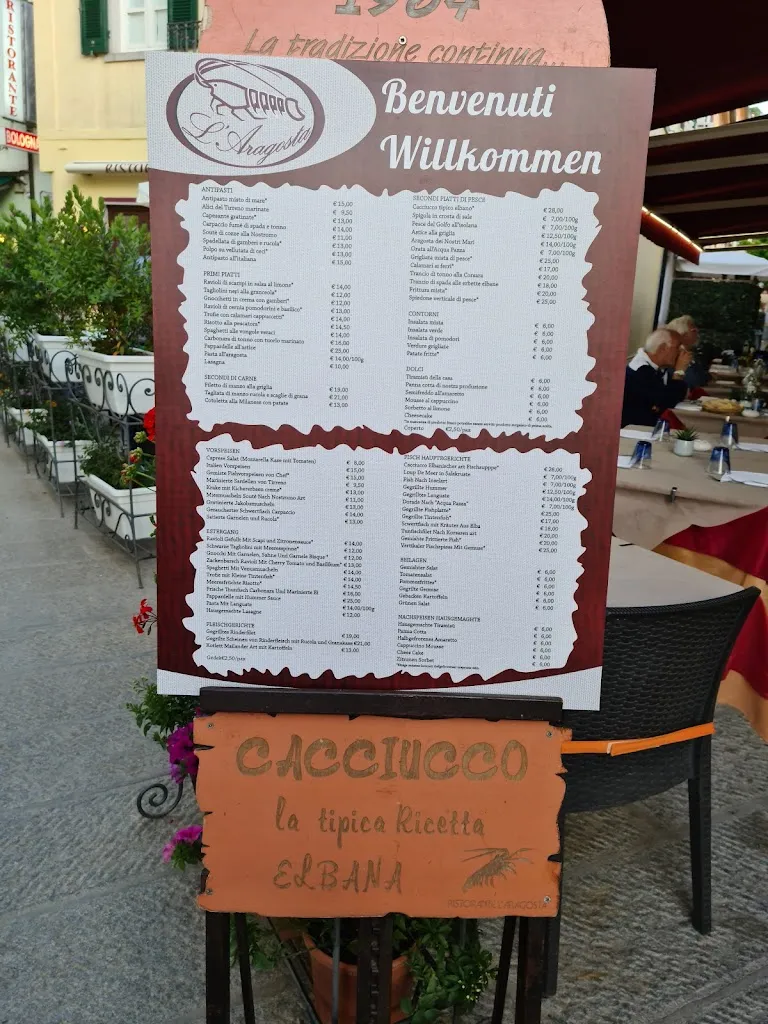 1904
La tradizione continua...
RISTORANTE
BOLOGNA
L'Aragosta
Benvenuti
Willkommen
ANTIPASTI
Antipasto misto di mare* € 15,00
Alici del Tirreno marinate € 9,50
Capesante gratinate* € 13,00
Carpaccio fumé di spada e tonno € 14,00
Souté di cozze alla Nostromo € 11,00
Spadellata di gamberi e rucola* € 13,00
Polpo su vellutata di ceci* € 13,00
Antipasto all'italiana € 13,00
PRIMI PIATTI
Ravioli di scampi in salsa al limone* € 14,00
Tagliolini neri alla granceola* € 12,00
Gnocchetti in crema con gamberi* € 12,00
Ravioli di cernia pomodorini e basilico* € 13,00
Trofie con calamari cappuccetti* € 14,00
Risotto alla pescatora* € 14,50
Spaghetti alle vongole veraci € 14,00
Carbonara di tonno con tuorlo marinato € 16,00
Pappardelle all'astice € 23,00
Pasta all'aragosta € 14,00/100g
Lasagna € 10,00
SECONDI DI CARNE
Filetto di manzo alla griglia € 19,00
Tagliata di manzo rucola e scaglie di grana € 21,00
Cotoletta alla Milanese con patate € 13,00
SECONDI PIATTI DI PESCE
Cacciucco tipico elbano* € 28,00
Spigola in crosta di sale € 7,00/100g
Pesce del Golfo all'isolana € 7,00/100g
Astice alla griglia € 12,50/100g
Aragosta dei Nostri Mari € 14,00/100g
Orata all'Acqua Pazza € 7,00/100g
Grigliata mista di pesce* € 25,00
Calamari ai ferri* € 17,00
Trancio di tonno alla Corsara € 20,00
Trancio di spada alle erbette elbane € 18,00
Frittura mista* € 20,00
Spiedone verticale di pesce* € 25,00
CONTORNI
Insalata mista € 6,00
Insalata verde € 6,00
Insalata di pomodori € 6,00
Verdure grigliate € 6,00
Patate fritte* € 6,00
DOLCI
Tiramisù della casa € 6,00
Panna cotta di nostra produzione € 6,00
Semifreddo all'amaretto € 6,00
Mousse al cappuccino € 6,00
Sorbetto al limone € 6,00
Cheesecake € 6,00
Coperto €2,50/pax
VORSPEISEN
Caprese Salat (Mozzarella Kase mit Tomaten) € 8,00
Italien Vorspeisen € 13,00
Gemiste Fishvorspeisen von Chef* € 15,00
Marinierte Sardellen von Tirreno € 9,50
Krake mit Kichererbsen creme* € 13,00
Miesmuscheln Souté Nach Nostromo Art € 11,00
Gratinierte Jakobsmuscheln € 13,00
Geraucherter Schwertfisch Carpaccio € 14,00
Sotierte Garnelen und Rucola* € 13,00
ESTERGANG
Ravioli Gefullt Mit Scapi und Zitronensauce* € 14,00
Schwarze Tagliolini mit Meeresspinne* € 12,00
Gnocchi Mit Garnelen, Sahne Und Garnele Bisque* € 12,00
Zackenbarsch Ravioli Mit Cherry Tomato und Basilikum* € 13,00
Spaghetti Mit Venusmuscheln € 14,00
Trofie mit Kleine Tintenfish* € 14,00
Meeresfrüchte Risotto* € 14,50
Frische Thunfisch Carbonara Und Marinierte Ei € 16,00
Pappardelle mit Hummer Sauce € 23,00
Pasta Mit Languste € 14,00/100g
Hausgemachte Lasagne € 12,00
FLEISCHGERICHTE
Gegrilltes Rinderfilet € 19,00
Gegrillte Scheinen von Rinderfleisch mit Rucola und Granakase €21,00
Kotlett Mailander Art mit Kartoffeln € 13,00
Gedek€2,50/pax
FISCH HAUPTGERICHTE
Cacciucco Elbanischer Art Fischsuppe* € 28,00
Loup De Meer in Salzkruste € 7,00/100g
Fish Nach Inselart € 7,00/100g
Gegrillter Hummer € 12,50/100g
Gegrilltes Languste € 14,00/100g
Dorade Nach "Acqua Pazza" € 7,00/100g
Gegrillte Fishplatte* € 25,00
Gegrillte Tintenfish* € 17,00
Scwertfisch mit Krauter Aus Elba € 18,00
Tunfischsteak Nach Korsaren art € 20,00
Gemischte Frittierte Fish* € 20,00
Vertikaler Fischspiess Mit Gemuse* € 25,00
BEILAGEN
Gemischter Salat € 6,00
Tomatensalat € 6,00
Pommesfrittes* € 6,00
Gegrillte Gemuse € 6,00
Gebacken Kartoffeln € 6,00
Grünen Salat € 6,00
NACHSPEISEN HAUSGEMACHTE
Hausgemachte Tiramisú € 6,00
Panna Cotta € 6,00
Halbgefrorenes Amaretto € 6,00
Cappuccino Mousse € 6,00
Chees Cake € 6,00
Zitronen Sorbet € 6,00
CACCIUCCO
la tipica Ricetta
ELBANA
RISTORANTE L'ARAGOSTA